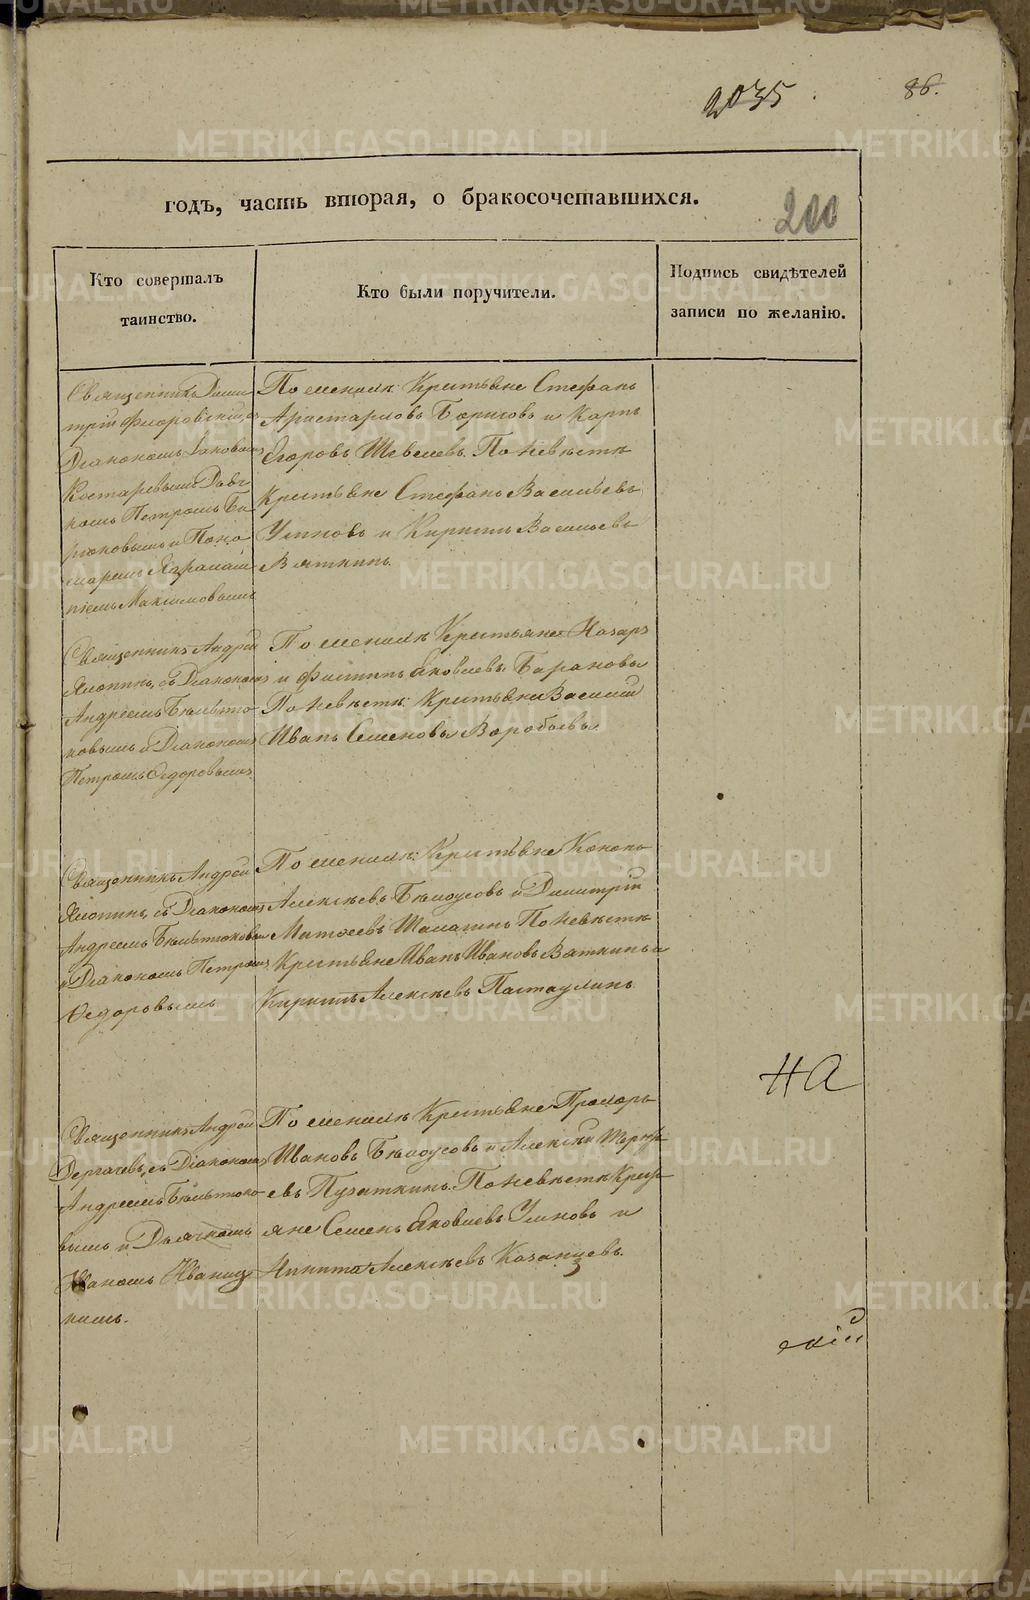 2035
86.
годъ, часть вторая, о бракосочетавшихся.
200
Кто совершалъ
таинство.
Кто были поручители.
Подпись свидѣтелей
записи по желанію.
Священникъ Дими
трій Флоровскій, съ
Діакономъ Іаковомъ
Костаревымъ Дьяч
комъ Петромъ
и Поно
маремъ
піемъ Максимовымъ
По женихѣ: Крестьяне Стефанъ
Аристарховъ Борисовъ и Карпъ
Егоровъ Шевелевъ. По невѣстѣ
Крестьяне Стефанъ Васильевъ
Умновъ и Кириллъ Васильевъ
Вяткинъ.
Священникъ Андрей
Хлопинъ, съ Діакономъ
Андреемъ Бѣльтю
ковымъ и Діакономъ
Петромъ Ѳедоровымъ
По женихѣ Крестьяне Назаръ
и Филиппъ Яковлевы Барановы
По невѣстѣ: Крестьяне Василій
Иванъ Семеновы Воробьевы
Священникъ Андрей
Хлопинъ, съ Діакономъ
Андреемъ Бѣльтюковымъ
и Діакономъ Петромъ
Ѳедоровымъ
По женихѣ: Крестьяне Кононъ
Алексѣевъ Бѣлоусовъ и Димитрій
Матѳеевъ Шалагинъ По невѣстѣ
Крестьяне Иванъ Ивановъ Вяткинъ и
Кириллъ Алексѣевъ
Священникъ Андрей
Дергачевъ, съ Діакономъ
Андреемъ Бѣльтюко
вымъ и Дьячкомъ
Иваномъ Иваниц
кимъ.
По женихѣ Крестьяне Прохоръ
Ивановъ Бѣлоусовъ и Алексѣй
евъ Пузаткинъ. По невѣстѣ Крест
яне Семенъ Яковлевъ Умновъ и
Никита Алексѣевъ Казанцевъ.
НА
скій
METRIKI.GASO-URAL.RU